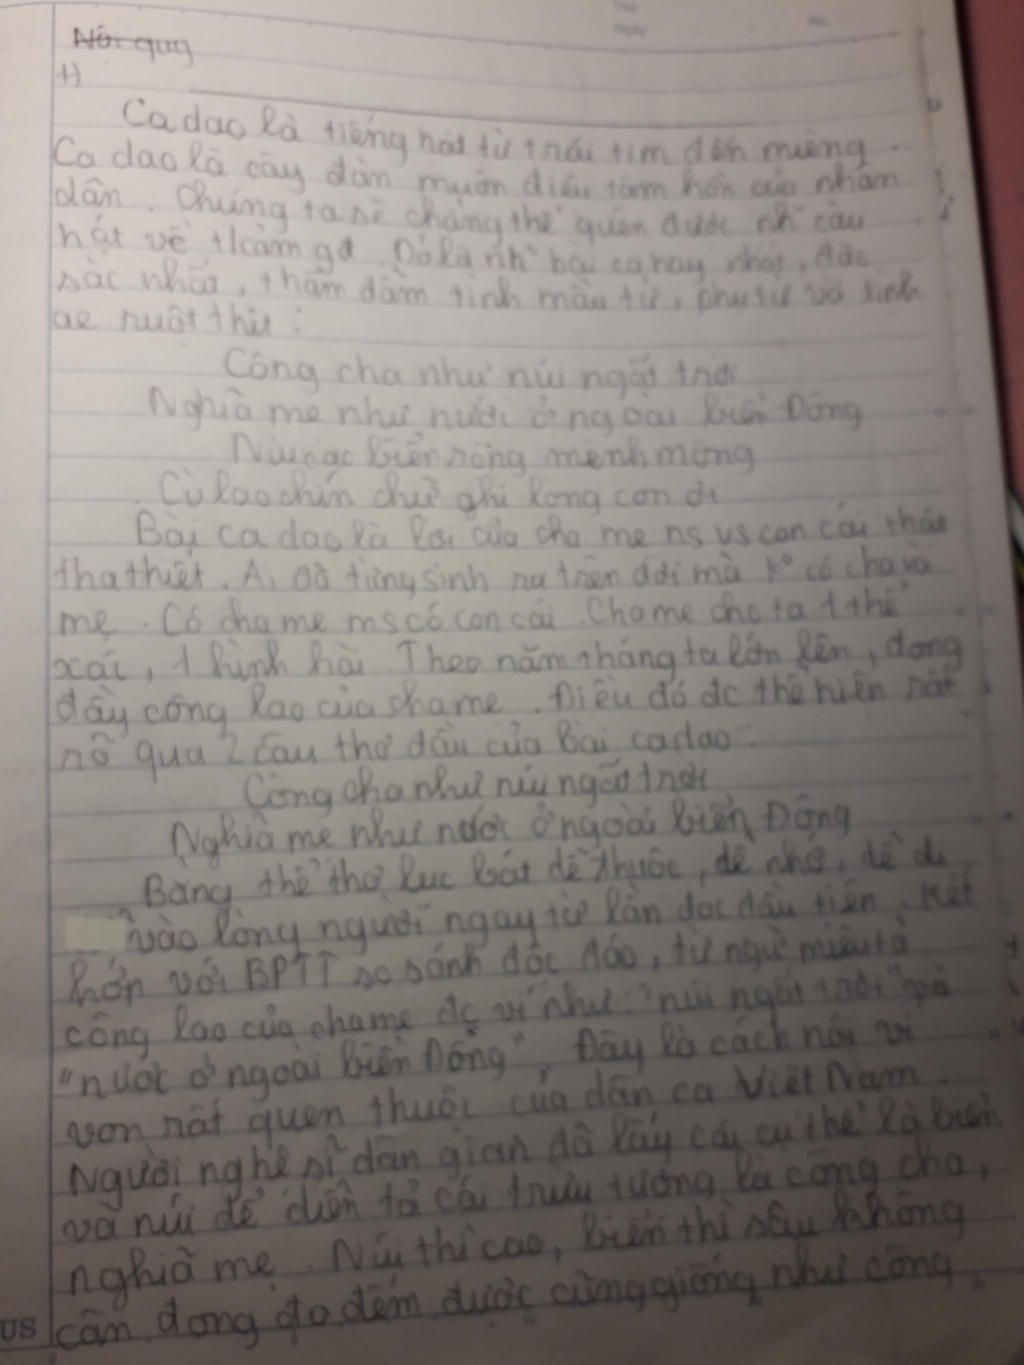 Nôi quy
1)
Ca dao là tiếng hát từ trái tim đến miệng.
Ca dao là cây đàn muôn điệu tâm hồn của nhân
dân. Chúng ta sẽ chẳng thể quên được nh~ câu
hát về t/cảm gđ. Đó là nh~ bài ca hay nhất, đặc
sắc nhất, thấm đẫm tình mẫu tử, phụ tử và tình
ae ruột thịt:
Công cha như núi ngất trời
Nghĩa mẹ như nước ở ngoài biển Đông
Núi cao biển rộng mênh mông
Cù lao chín chữ ghi lòng con ơi
Bài ca dao là lời của cha mẹ ns vs con cái thật
tha thiết. Ai đã từng sinh ra trên đời mà k° có cha và
mẹ. Có cha mẹ ms có con cái. Cha mẹ cho ta 1 thể
xác, 1 hình hài. Theo năm tháng ta lớn lên, đong
đầy công lao của cha mẹ. Điều đó đc thể hiện rất
rõ qua 2 câu thơ đầu của bài ca dao:
Công cha như núi ngất trời
Nghĩa mẹ như nước ở ngoài biển Đông
Bằng thể thơ lục bát dễ thuộc, dễ nhớ, dễ đi
vào lòng người ngay từ lần đọc đầu tiên. Kết
hợp với BPTT so sánh độc đáo, từ ngữ miêu tả
công lao của cha mẹ đc ví như: "núi ngất trời" và
"nước ở ngoài biển Đông". Đây là cách nói ví
von rất quen thuộc của dân ca Việt Nam.
Người nghệ sĩ dân gian đã lấy cái cụ thể là biển
và núi để diễn tả cái trừu tượng là công cha,
nghĩa mẹ. Núi thì cao, biển thì sâu không
cân, đong đo đếm được cũng giống như công
US